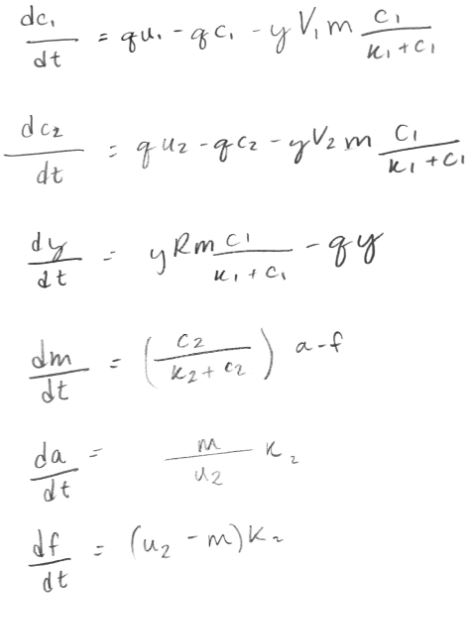 dc₁/dt = qu₁ - qc₁ - yV₁m c₁/(k₁+c₁)
dc₂/dt = qu₂ - qc₂ - yV₂m c₁/(k₁+c₁)
dy/dt = yRm c₁/(k₁+c₁) - qy
dm/dt = (c₂/(k₂+c₂)) a-f
da/dt = m/u₂ k₂
df/dt = (u₂ - m)k₂